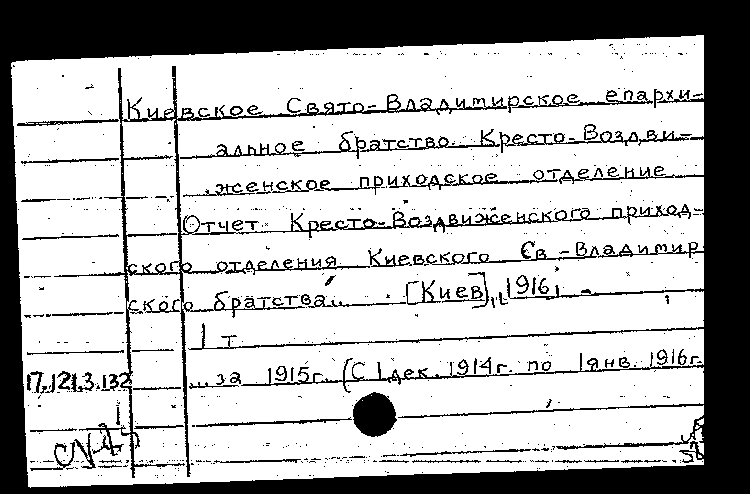 Киевское Свято-Владимирское епархи-
альное братство. Кресто-Воздви-
женское приходское отделение
Отчет Кресто-Воздвиженского приход-
ского отделения Киевского Св.-Владимир
ского братства... [Киев], 1916.
1 т
17.121.3.132 ...за 1915г. (С 1 дек. 1914г. по 1 янв. 1916г.